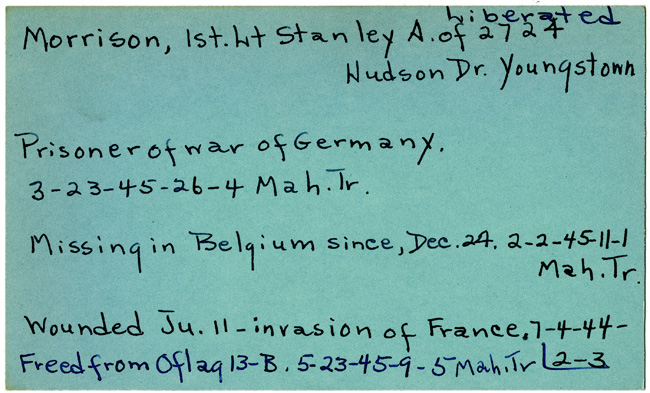 Liberated
Morrison, 1st. Lt Stanley A. of 2724
Hudson Dr. Youngstown
Prisoner of war of Germany.
3-23-45-26-4 Mah. Tr.
Missing in Belgium since, Dec. 24. 2-2-45-11-1
Mah. Tr.
Wounded Ju. 11-invasion of France. 7-4-44-
2-3
Freed from Oflag 13-B. 5-23-45-9-5 Mah. Tr